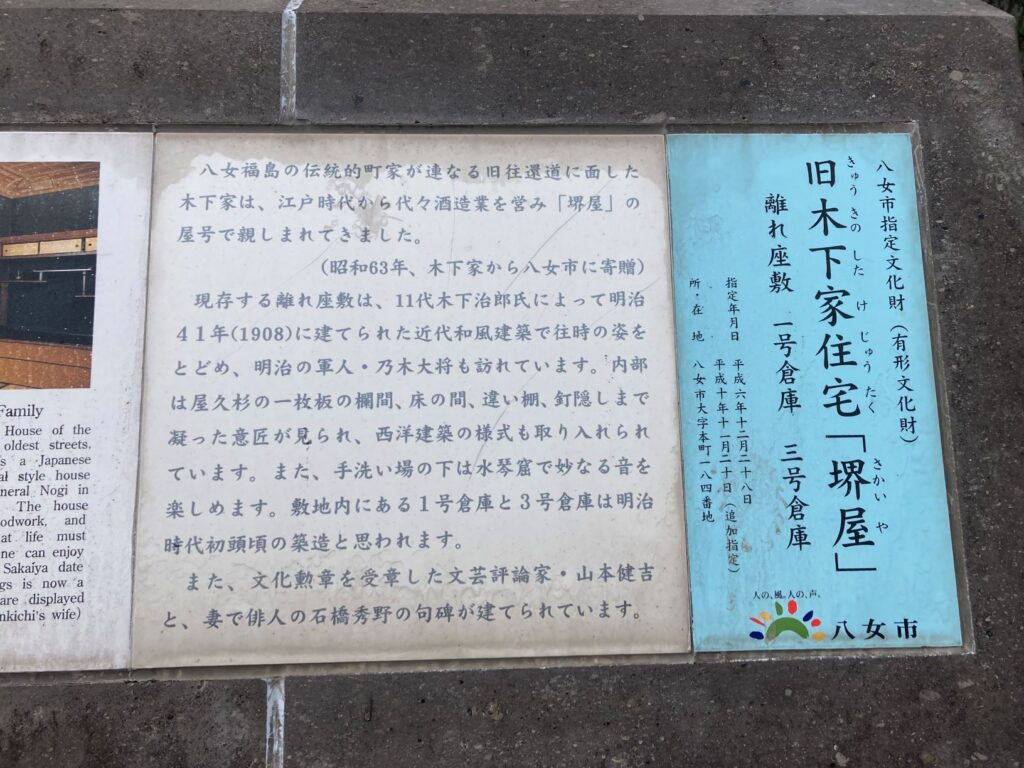 八女市指定文化財(有形文化財)
きゅう きの した け じゅう たく さかい や
旧木下家住宅「堺屋」
離れ座敷 一号倉庫 三号倉庫
指定年月日 平成六年十二月二十八日
平成十年十一月二十日(追加指定)
所・在 地 八女市大字本町一八四番地
人の、風。人の、声。
八女市
八女福島の伝統的町家が連なる旧往還道に面した
木下家は、江戸時代から代々酒造業を営み「堺屋」の
屋号で親しまれてきました。
(昭和63年、木下家から八女市に寄贈)
現存する離れ座敷は、11代木下治郎氏によって明治
41年(1908)に建てられた近代和風建築で往時の姿を
とどめ、明治の軍人・乃木大将も訪れています。内部
は屋久杉の一枚板の欄間、床の間、違い棚、釘隠しまで
凝った意匠が見られ、西洋建築の様式も取り入れられ
ています。また、手洗い場の下は水琴窟で妙なる音を
楽しめます。敷地内にある1号倉庫と3号倉庫は明治
時代初頭頃の築造と思われます。
また、文化勲章を受章した文芸評論家・山本健吉
と、妻で俳人の石橋秀野の句碑が建てられています。
Family
House of the
oldest streets,
s a Japanese
al style house
neral Nogi in
The house
odwork, and
at life must
ne can enjoy
Sakaiya date
gs is now a
are displayed
nkichi's wife)